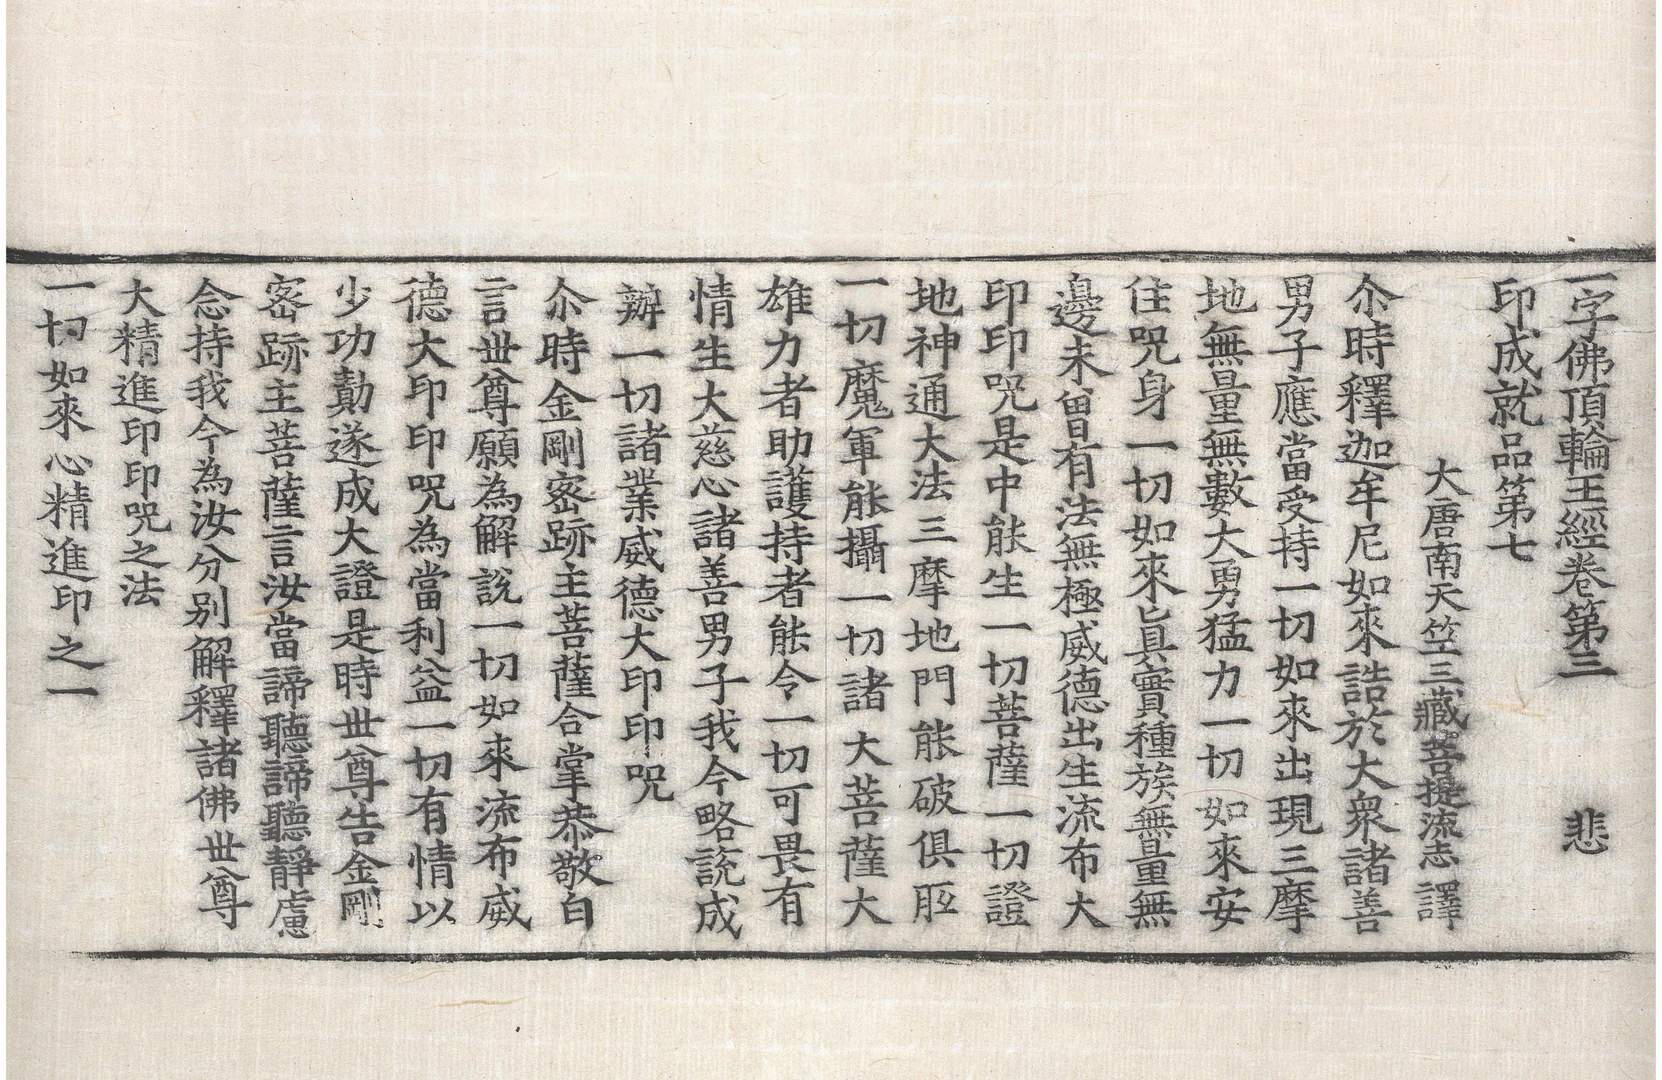 一字佛頂輪王經卷第三 悲
印成就品第七
大唐南天竺三藏菩提流志譯
尒時釋迦牟尼如來誥於大衆諸善
男子應當受持一切如來出現三摩
地無量無數大勇猛力一切如來安
住咒身一切如來㠯真實種族無量無
邊未曾有法無極威德出生流布大
印印咒是中能生一切菩薩一切證
地神通大法三摩地門能破俱胝
一切魔軍能攝一切諸大菩薩大
雄力者助護持者能令一切可畏有
情生大慈心諸善男子我今略說成
辦一切諸業威德大印印咒
尒時金剛密跡主菩薩合掌恭敬白
言世尊願為解說一切如來流布威
德大印印咒為當利益一切有情以
少功勣遂成大證是時世尊告金剛
密跡主菩薩言汝當諦聽諦聽靜慮
念持我今為汝分別解釋諸佛世尊
大精進印印咒之法
一切如來心精進印之一